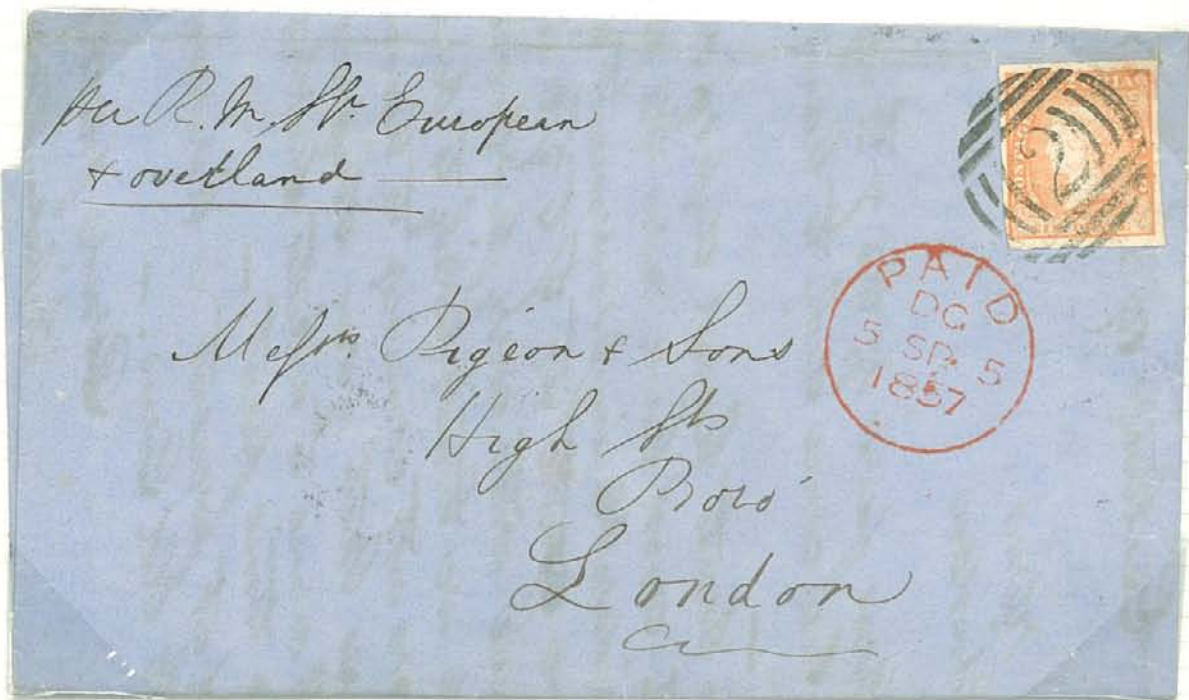 per R. M. Str. European
+ overland
2
PAID
DG
5 SP. 5
1857
Messrs. Pigeon + Sons
High St.
Boro'
London